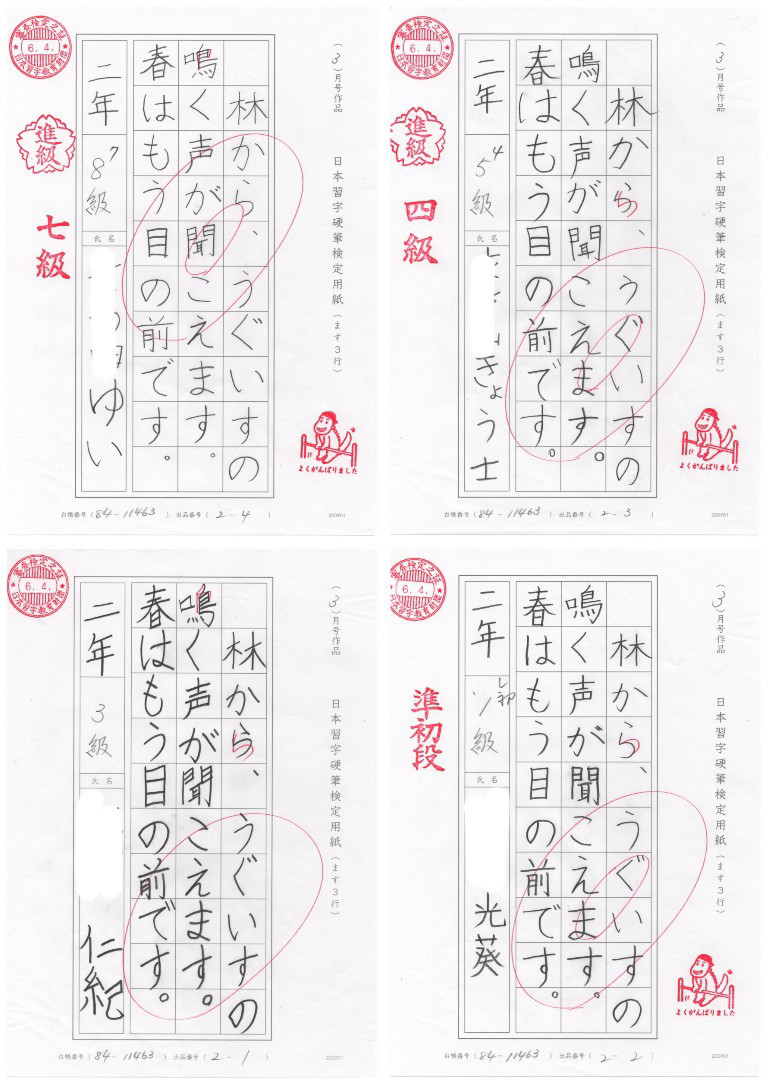 (3)月号作品
日本習字硬筆検定用紙(ます3行)
林から、うぐいすの
鳴く声が聞こえます。
春はもう目の前です。
二年
8 7
級
氏名
ゆい
審査検定之証
6.4.
日本習字教育財団
進級
七級
よくがんばりました
台帳番号(84-11463) 出品番号(2-4)
200901
(3)月号作品
日本習字硬筆検定用紙(ます3行)
林から、うぐいすの
鳴く声が聞こえます。
春はもう目の前です。
二年
5 4
級
氏名
きょう士
審査検定之証
6.4.
日本習字教育財団
進級
四級
よくがんばりました
台帳番号(84-11463) 出品番号(2-3)
200901
(3)月号作品
日本習字硬筆検定用紙(ます3行)
林から、うぐいすの
鳴く声が聞こえます。
春はもう目の前です。
二年
3
級
氏名
仁紀
審査検定之証
6.4.
日本習字教育財団
台帳番号(84-11463) 出品番号(2-1)
(3)月号作品
日本習字硬筆検定用紙(ます3行)
林から、うぐいすの
鳴く声が聞こえます。
春はもう目の前です。
二年
級
氏名
光葵
審査検定之証
6.4.
日本習字教育財団
準初段
よくがんばりました
台帳番号(84-11463) 出品番号(2-2)
200901